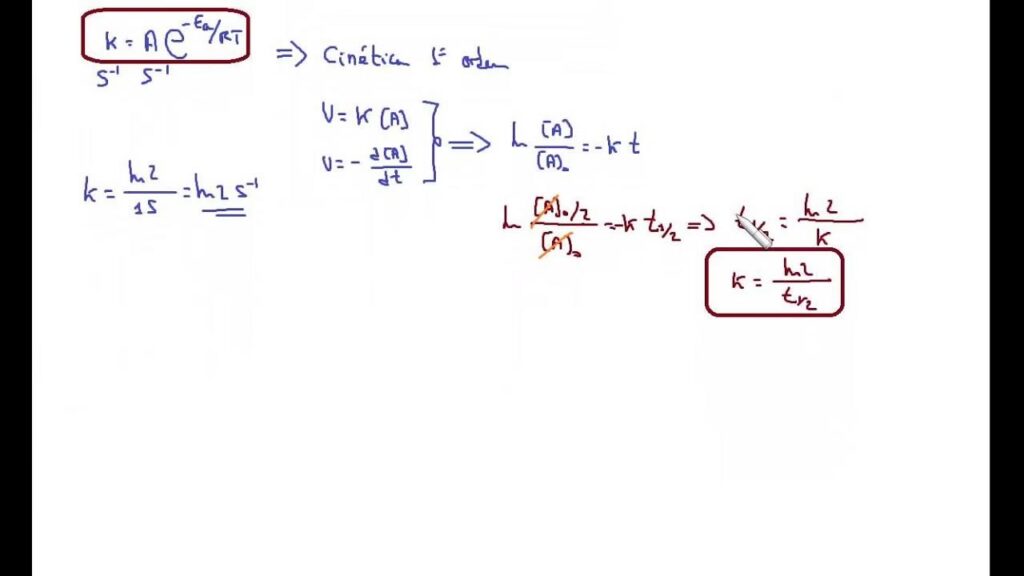 k = A e^-Ea/RT
s⁻¹ s⁻¹
=> Cinética 1ª orden
v = k [A]
v = - d[A]/dt
=> ln [A]/[A]₀ = -k t
k = ln2/1s = ln2 s⁻¹
ln [A]₀/2/[A]₀ = -k t₁/₂ => t₁/₂ = ln2/k
k = ln2/t₁/₂